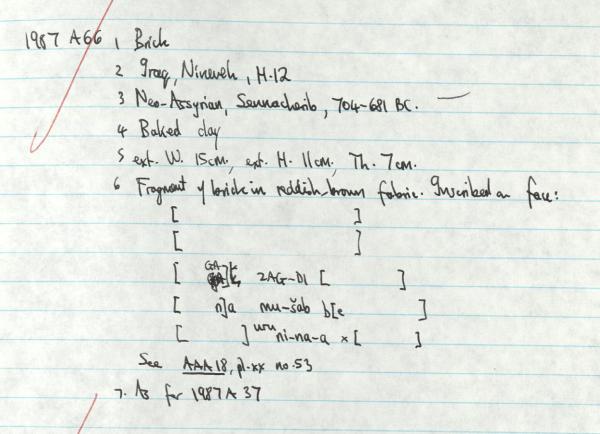 1987 A66 1 Brick
2 Iraq, Nineveh, H.12
3 Neo-Assyrian, Sennacherib, 704-681 BC.
4 Baked clay
5 ext. W. 15cm, ext. H. 11cm, Th. 7cm.
6 Fragment of brick in reddish-brown fabric. Inscribed on face:
[ ]
[ ]
[ GA]K ZAG-DI [ ]
[ n]a mu-šab b[e ]
[ ] uru ni-na-a x [ ]
See AAA 18, pl.xx no.53
7. As for 1987 A 37